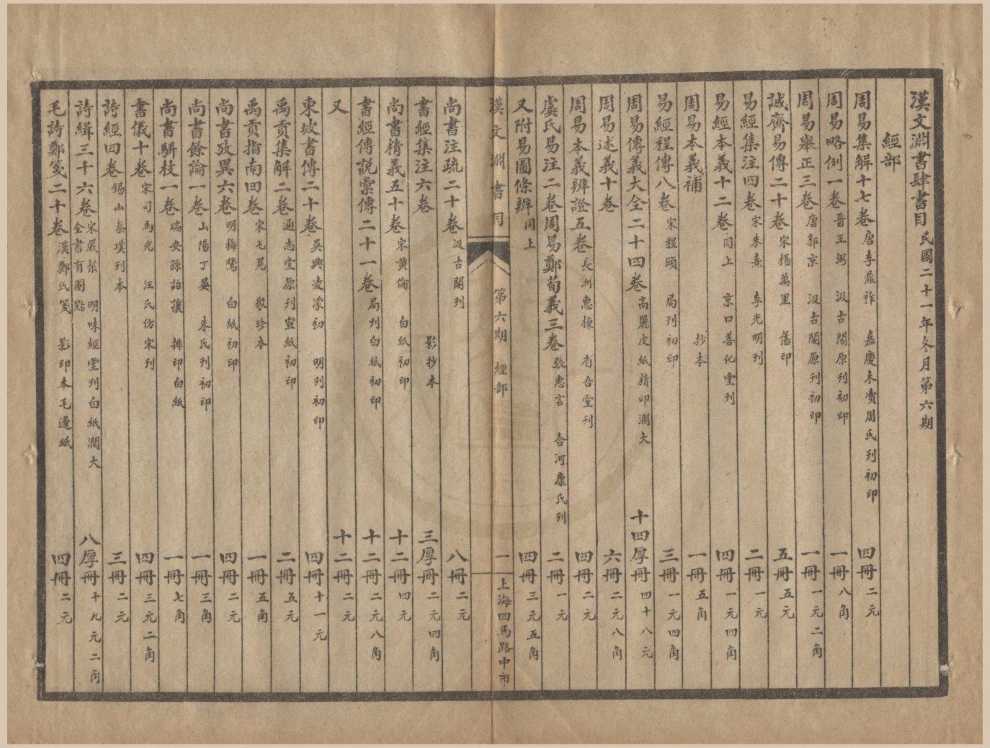 漢文淵書肆書目 民國二十一年冬月第六期
經部
周易集解十七卷 唐李鼎祚 嘉慶木瀆周氏刊初印 四冊 二元
周易略例一卷 晉王弼 汲古閣原刊初印 一冊 八角
周易舉正三卷 唐郭京 汲古閣原刊初印 一冊 一元二角
誠齋易傳二十卷 宋楊萬里 舊印 五冊 五元
易經集注四卷 宋朱熹 李光明刊 二冊 一元
易經本義十二卷 同上 京口善化堂刊 四冊 一元四角
周易本義補 抄本 一冊 五角
易經程傳八卷 宋程頤 局刊初印 三冊 一元四角
周易傳義大全二十四卷 高麗皮紙精印濶大 十四厚冊 四十八元
周易述義十卷 六冊 二元八角
周易本義辨證五卷 長洲惠棟 省吾堂刊 四冊 二元
虞氏易注二卷周易鄭荀義三卷 張惠言 合河康氏刊 二冊 一元
又附易圖條辨 同上 四冊 三元五角
漢文淵書目 第六期 經部 一 上海四馬路中市
尚書注疏二十卷 汲古閣刊 八冊 二元
書經集注六卷 影抄本 三厚冊 二元四角
尚書精義五十卷 宋黃倫 白紙初印 十二冊 四元
書經傳說彙傳二十一卷 局刊白紙初印 十二冊 二元八角
又 十二冊 二元
東坡書傳二十卷 吳興凌濛初 明刊初印 四冊 十一元
禹貢集解二卷 通志堂原刊宣紙初印 二冊 五元
禹貢指南四卷 宋毛晃 聚珍本 一冊 五角
尚書攷異六卷 明梅鷟 白紙初印 四冊 二元
尚書餘論一卷 山陽丁晏 朱氏刊初印 一冊 三角
尚書駢枝一卷 瑞安孫詒讓 排印白紙 一冊 七角
書儀十卷 宋司馬光 汪氏仿宋刊 四冊 三元二角
詩經四卷 錫山秦璞刊本 三冊 二元
詩緝三十六卷 宋嚴粲 明味經堂刊白紙濶大 全書有圈點 八厚冊 十九元二角
毛詩鄭箋二十卷 漢鄭氏箋 影印本毛邊紙 四冊 二元